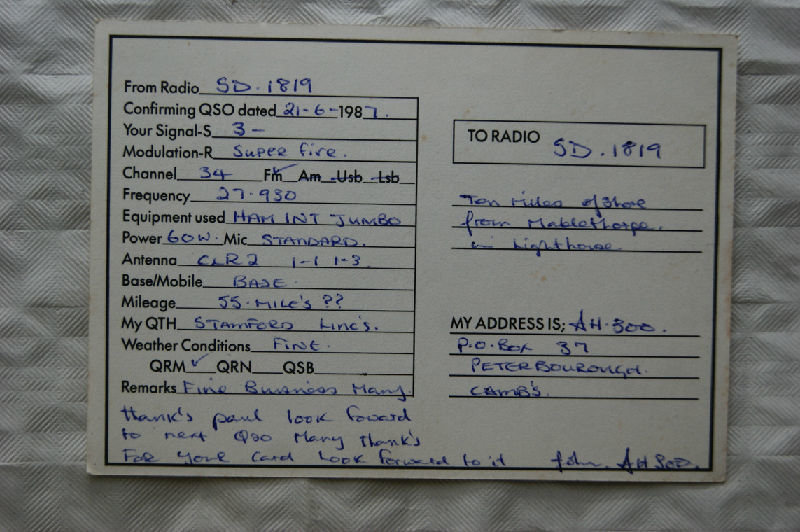 From Radio SD.1819
Confirming QSO dated 21-6-1987.
Your Signal-S 3-
Modulation-R Super fire.
Channel 34 Fm Am Usb Lsb
Frequency 27.930
Equipment used HAM INT JUMBO
Power 60W. Mic STANDARD.
Antenna CLR2 1-1 1-3
Base/Mobile BASE.
Mileage 55.MILE'S ??
My QTH STAMFORD LINC'S.
Weather Conditions FINE.
QRM ✓ QRN QSB
Remarks Fine Business Many
thank's paul look foward
to next QSO Many thank's
For your card Look forward to it John. AH300.
TO RADIO SD.1819
Ten miles of shore
from Mablethorpe.
in Lighthouse
MY ADDRESS IS; AH.300.
P.O.BOX 37
PETERBOUROUGH.
CAMB'S.